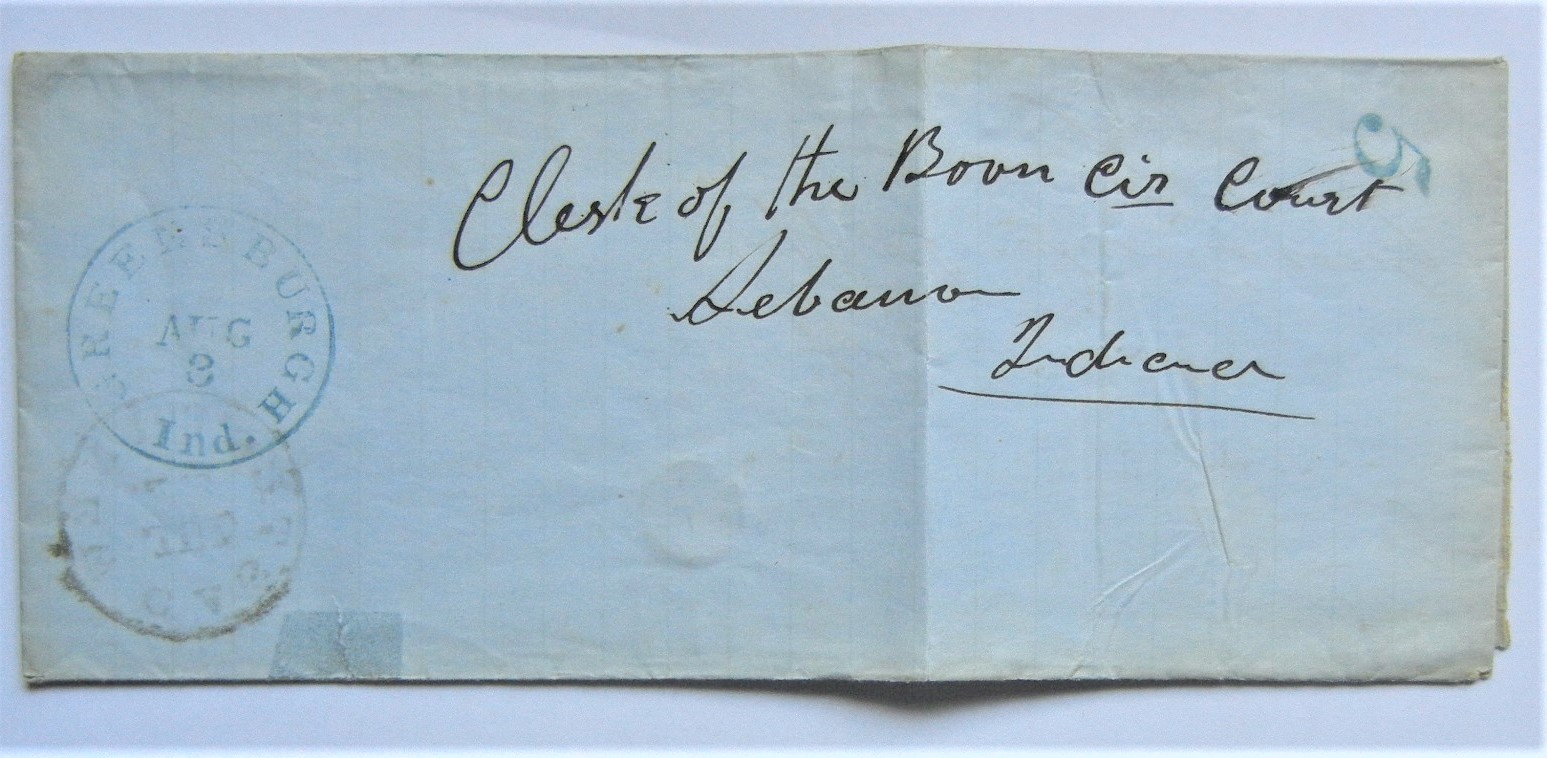 5
Clerk of the Boon Cir Court
Lebanon
Indiana
GREENSBURGH
AUG
3
Ind.